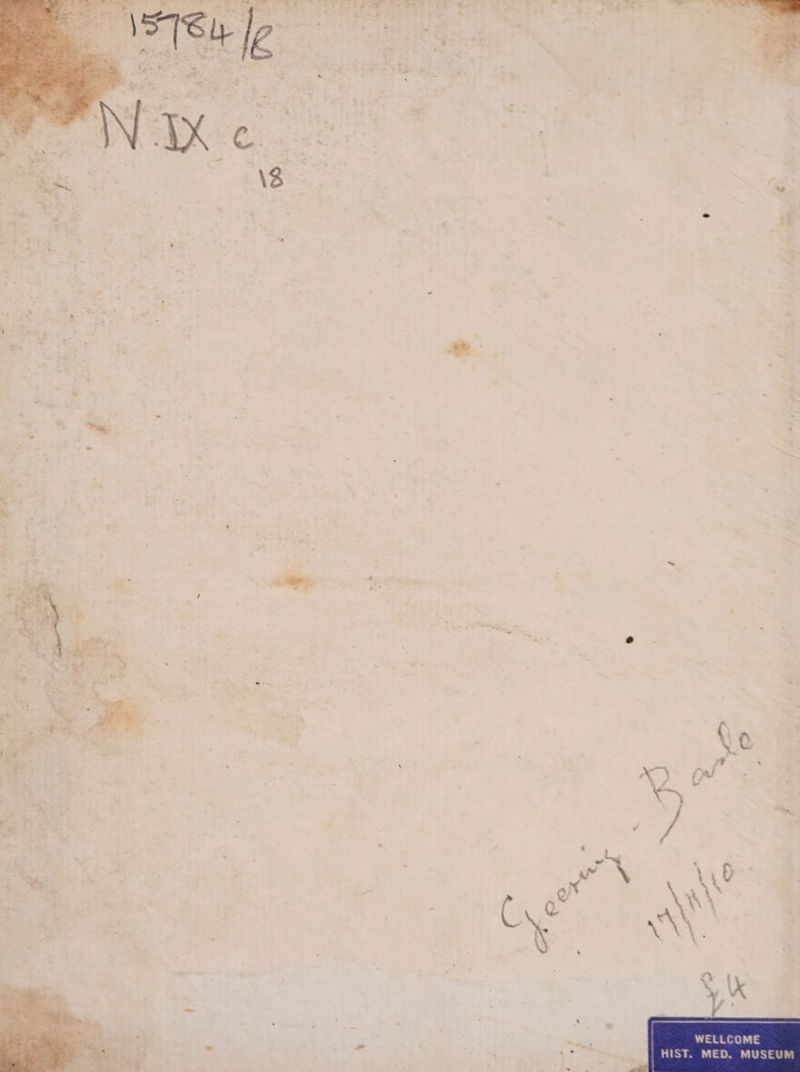 15784/B
N.IX c
18
Geering - Basle
17/11/10
£4
WELLCOME
HIST. MED. MUSEUM